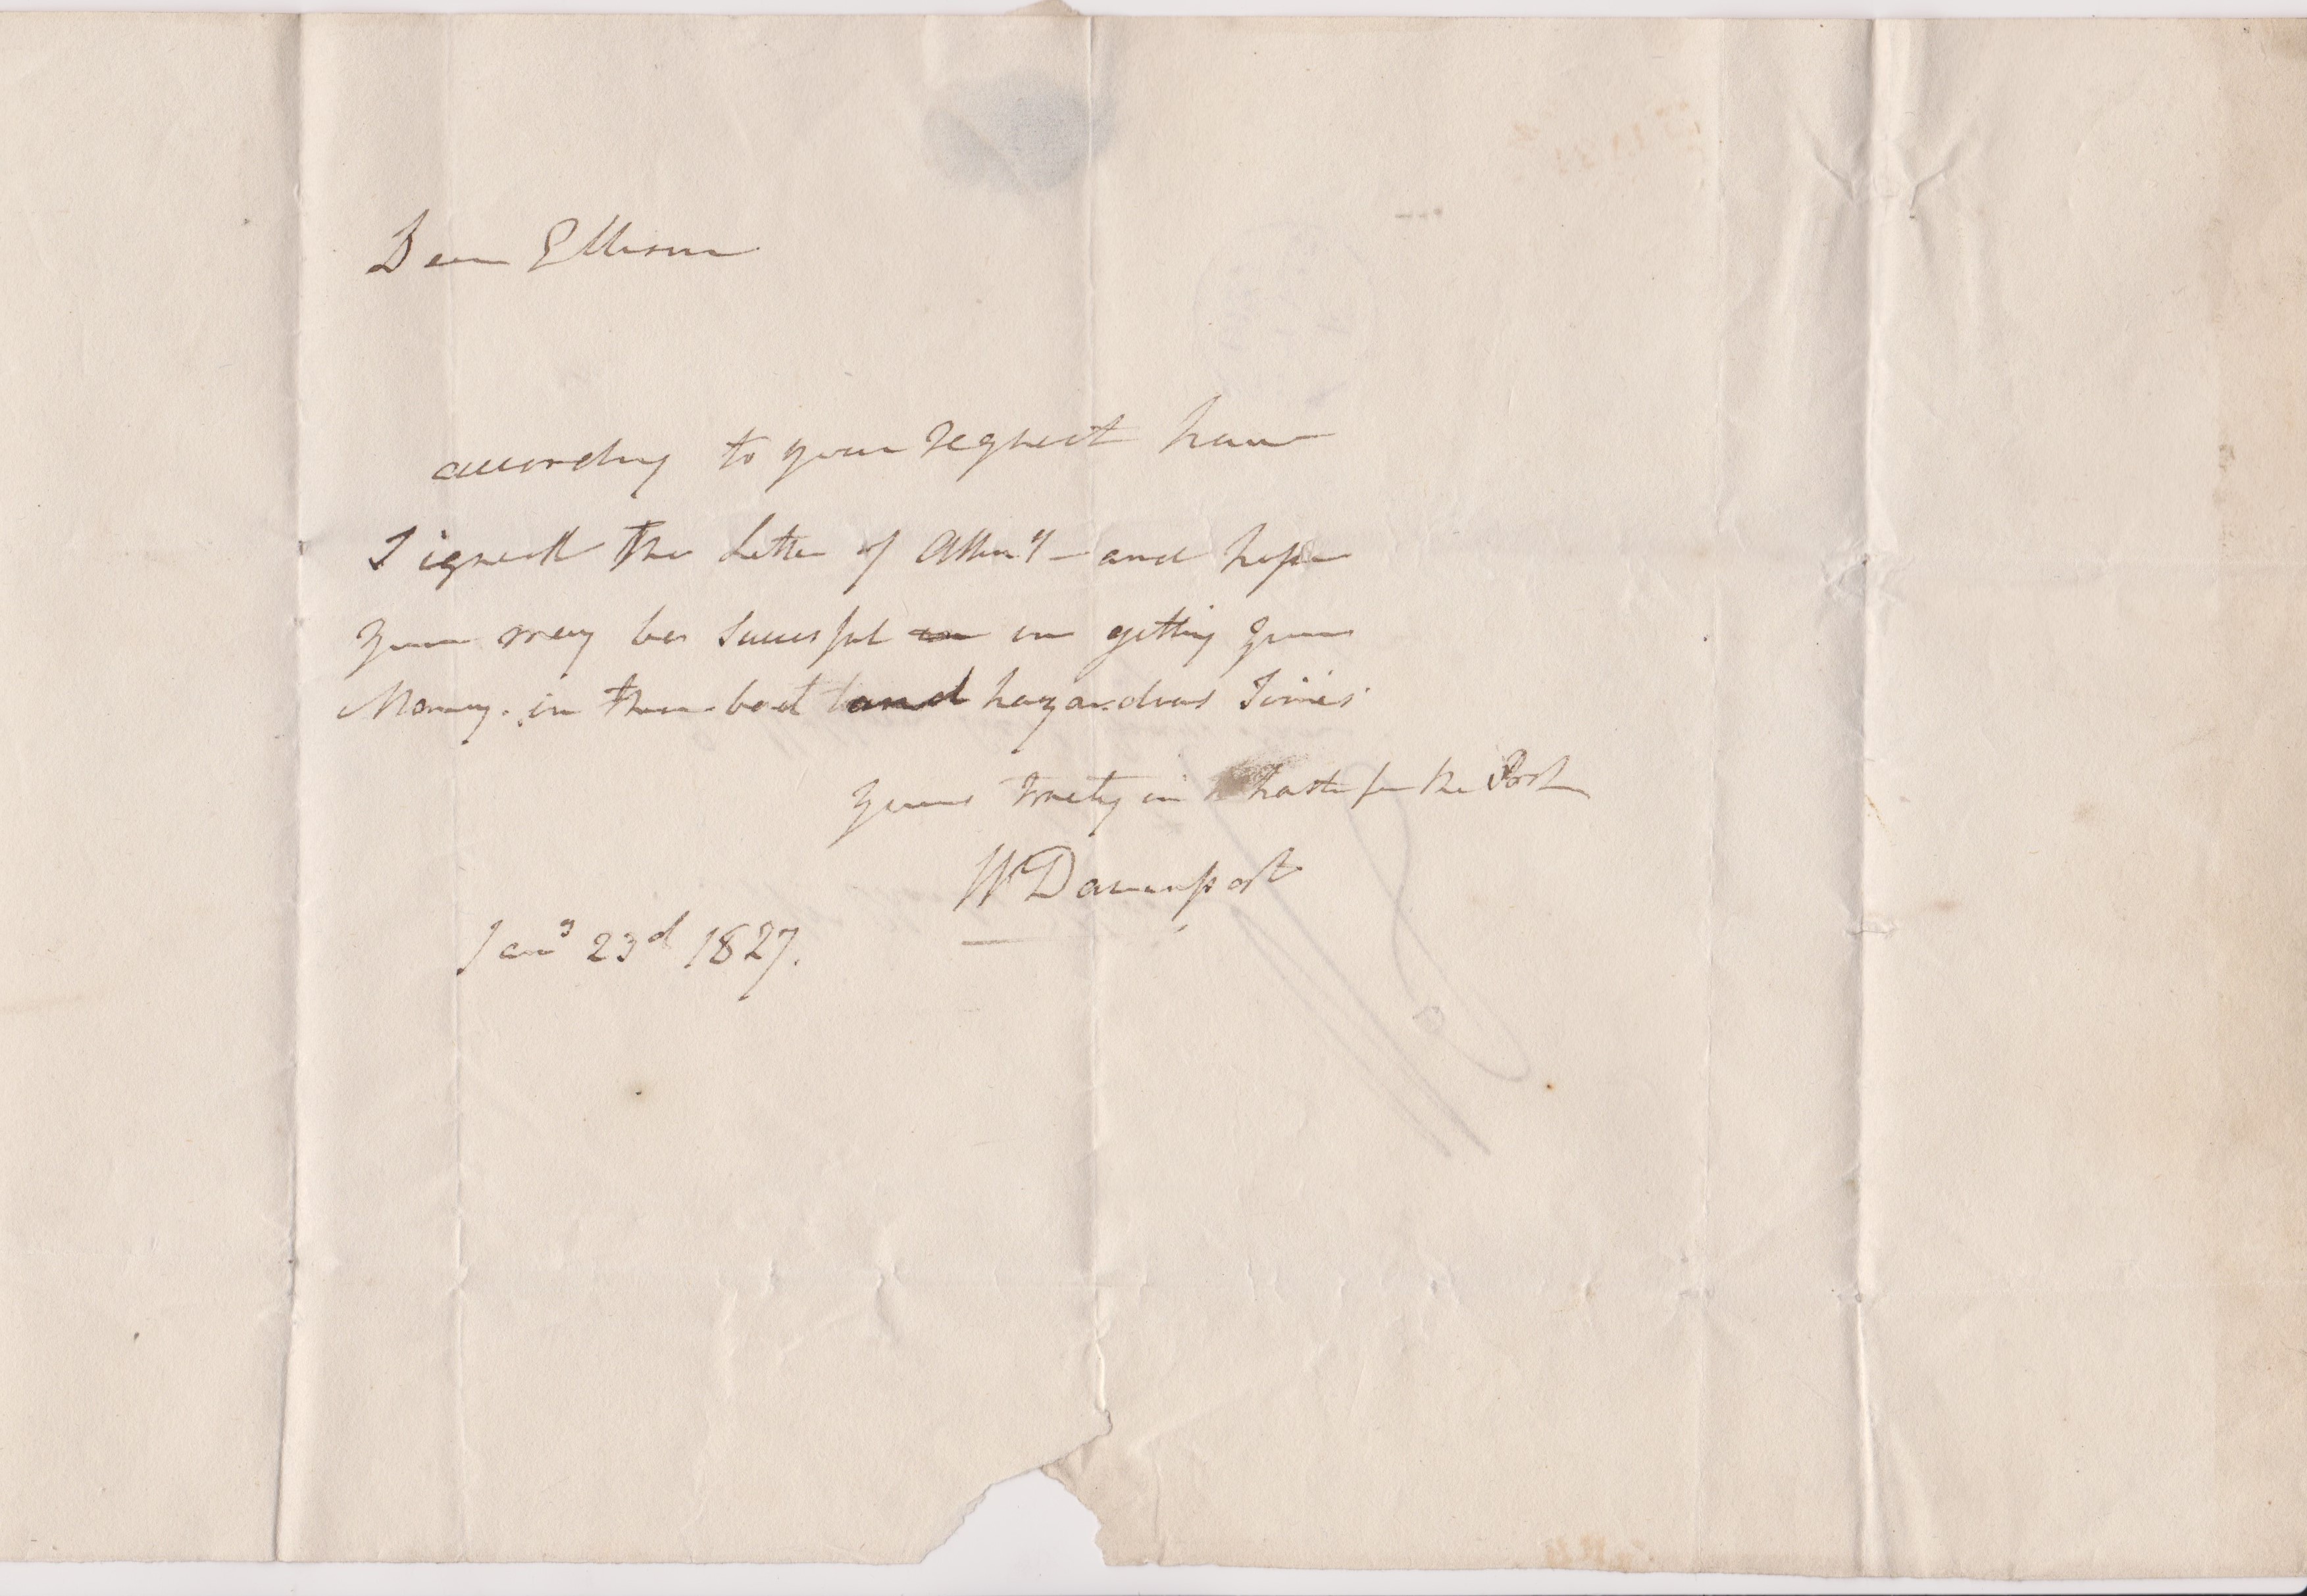 Dear Ellison
according to your request have
Signed the Letter of Att'y - and hope
you may be Sucesful in getting your
Money. in these bad and hazardous Times
yours truely in haste for the Post
W Davenport
Jany 23d 1827.